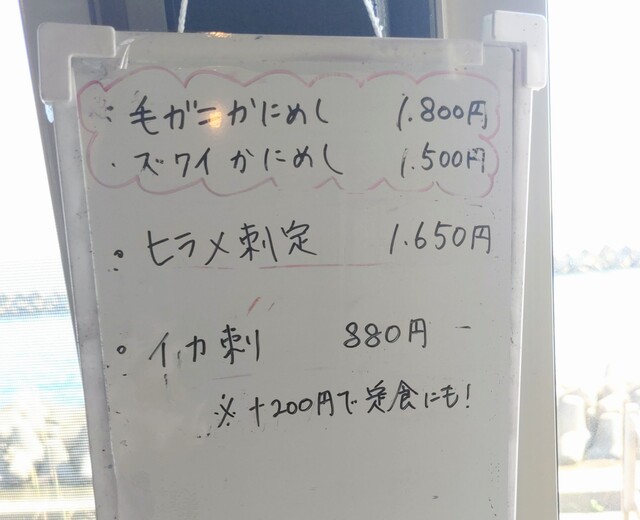 ・毛ガニかにめし 1.800円
・ズワイかにめし 1.500円
。ヒラメ刺定 1.650円
。イカ刺 880円
※+200円で定食にも!